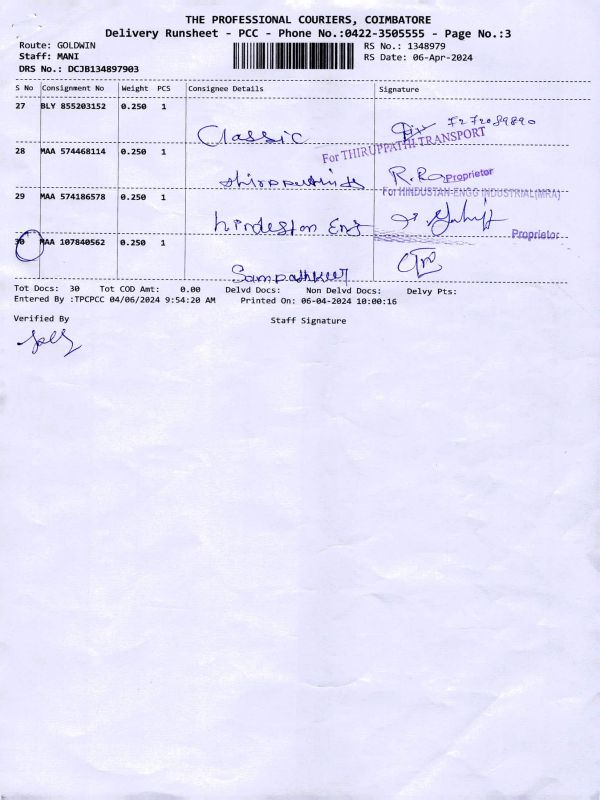 THE PROFESSIONAL COURIERS, COIMBATORE
Delivery Runsheet - PCC - Phone No.:0422-3505555 - Page No.:3
Route: GOLDWIN RS No.: 1348979
Staff: MANI RS Date: 06-Apr-2024
DRS No.: DCJB134897903
S No Consignment No Weight PCS Consignee Details Signature
27 BLY 855203152 0.250 1
Classic
For THIRUPPATHI TRANSPORT
28 MAA 574468114 0.250 1
R.R Proprietor
29 MAA 574186578 0.250 1 For HINDUSTAN ENGG INDUSTRIAL(MRA)
hindustan Eng
Proprietor
30 MAA 107840562 0.250 1
Tot Docs: 30 Tot COD Amt: 0.00 Delvd Docs: Non Delvd Docs: Delvy Pts:
Entered By :TPCPCC 04/06/2024 9:54:20 AM Printed On: 06-04-2024 10:00:16
Verified By Staff Signature